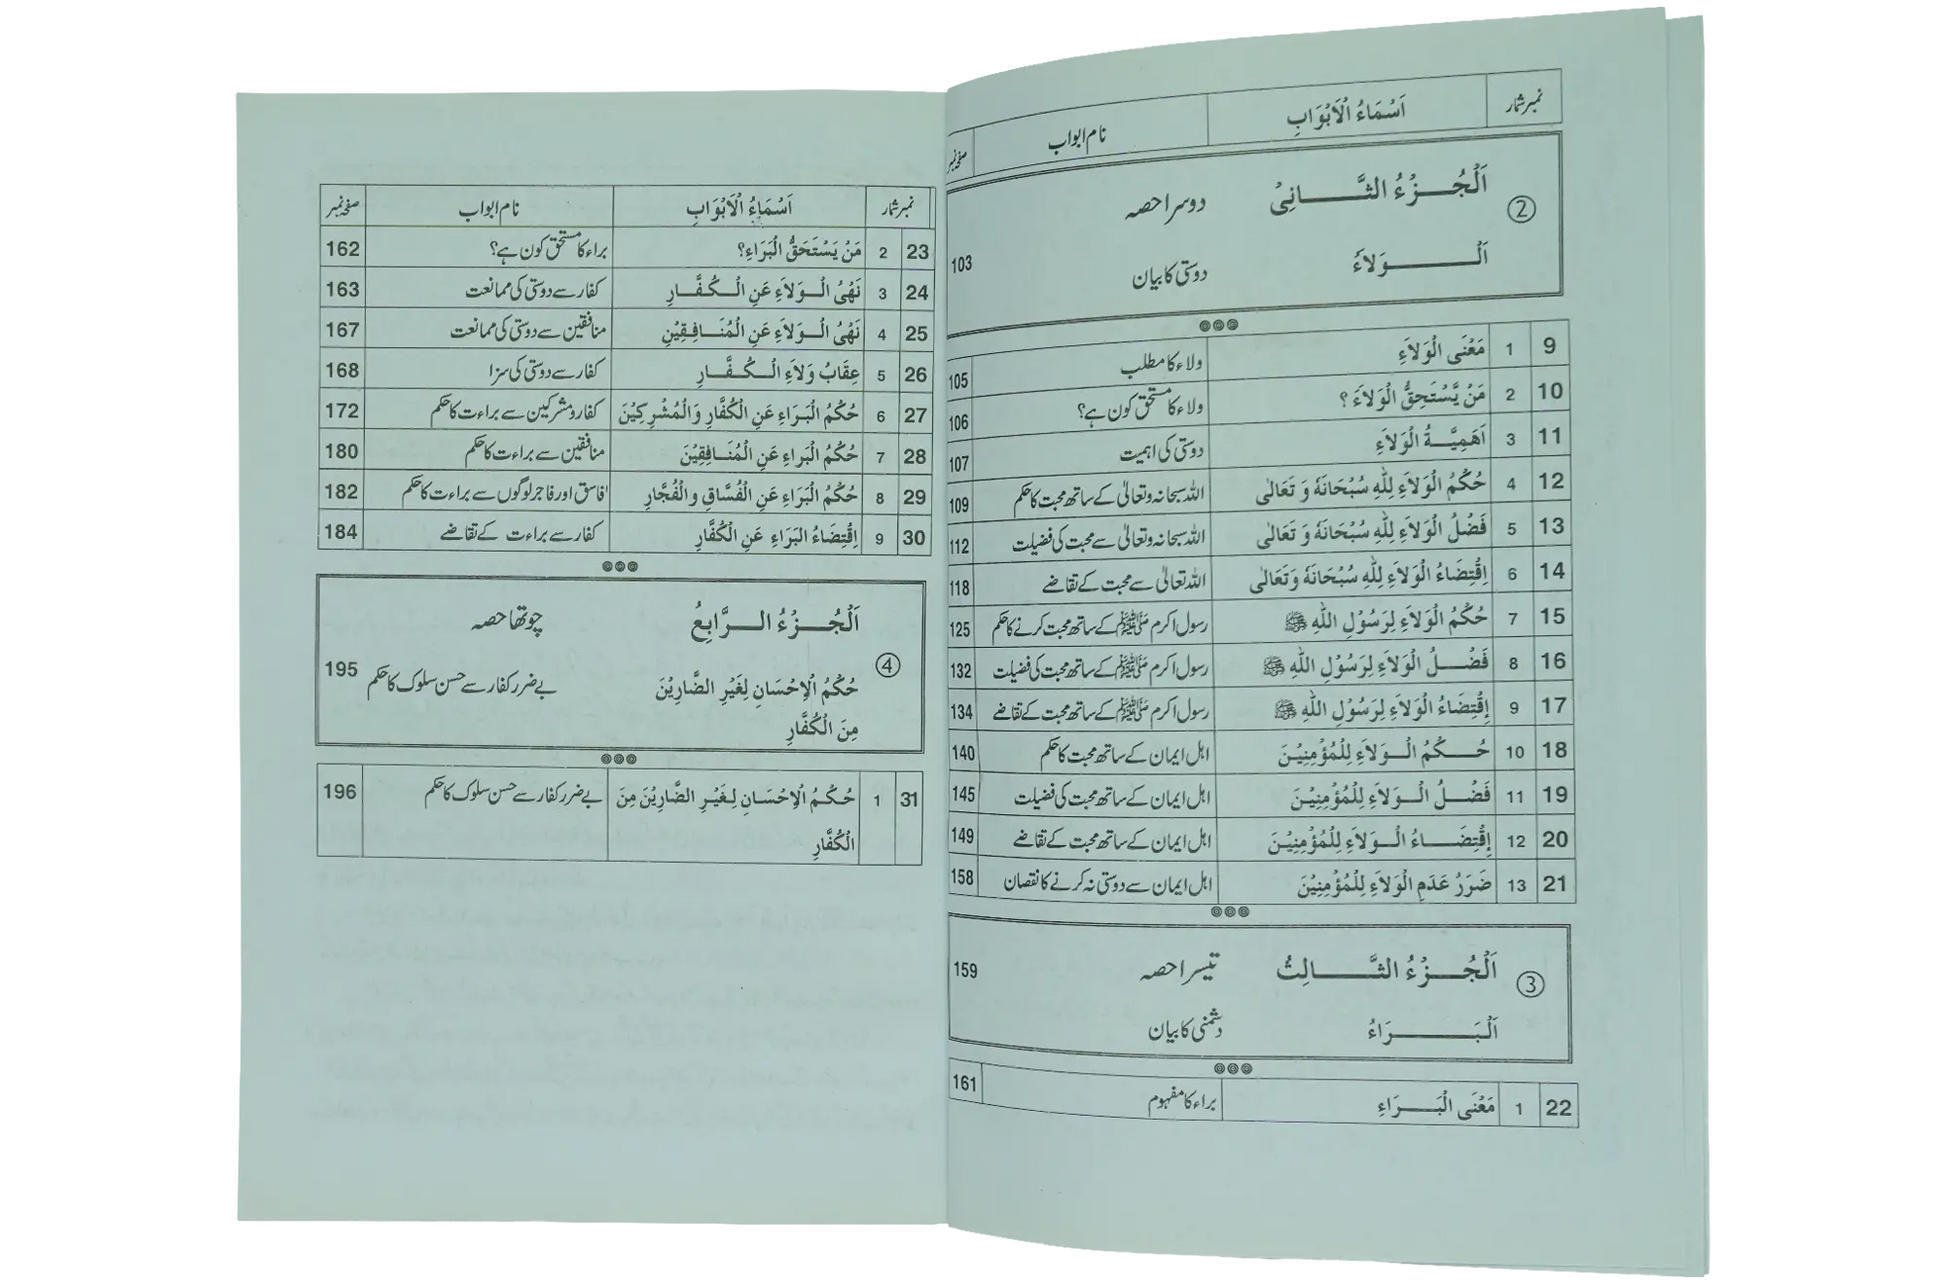 نمبر شمار اَسْمَاءُ الْاَبْوَابِ نام ابواب صفحہ نمبر
② اَلْجُزْءُ الثَّانِیْ دوسرا حصہ
اَلْوَلَاءُ دوستی کا بیان 103
9 1 مَعْنَی الْوَلَاءِ ولاء کا مطلب 105
10 2 مَنْ یَّسْتَحِقُّ الْوَلَاءَ ؟ ولاء کا مستحق کون ہے؟ 106
11 3 اَهَمِیَّةُ الْوَلَاءِ دوستی کی اہمیت 107
12 4 حُکْمُ الْوَلَاءِ لِلّٰهِ سُبْحَانَهٗ وَ تَعَالٰی اللہ سبحانہ وتعالیٰ کے ساتھ محبت کا حکم 109
13 5 فَضْلُ الْوَلَاءِ لِلّٰهِ سُبْحَانَهٗ وَ تَعَالٰی اللہ سبحانہ وتعالیٰ سے محبت کی فضیلت 112
14 6 اِقْتِضَاءُ الْوَلَاءِ لِلّٰهِ سُبْحَانَهٗ وَتَعَالٰی اللہ تعالیٰ سے محبت کے تقاضے 118
15 7 حُکْمُ الْوَلَاءِ لِرَسُوْلِ اللّٰهِ ﷺ رسول اکرم ﷺ کے ساتھ محبت کرنے کا حکم 125
16 8 فَضْلُ الْوَلَاءِ لِرَسُوْلِ اللّٰهِ ﷺ رسول اکرم ﷺ کے ساتھ محبت کی فضیلت 132
17 9 اِقْتِضَاءُ الْوَلَاءِ لِرَسُوْلِ اللّٰهِ ﷺ رسول اکرم ﷺ کے ساتھ محبت کے تقاضے 134
18 10 حُکْمُ الْوَلَاءِ لِلْمُؤْمِنِیْنَ اہل ایمان کے ساتھ محبت کا حکم 140
19 11 فَضْلُ الْوَلَاءِ لِلْمُؤْمِنِیْنَ اہل ایمان کے ساتھ محبت کی فضیلت 145
20 12 اِقْتِضَاءُ الْوَلَاءِ لِلْمُؤْمِنِیْنَ اہل ایمان کے ساتھ محبت کے تقاضے 149
21 13 ضَرَرُ عَدَمِ الْوَلَاءِ لِلْمُؤْمِنِیْنَ اہل ایمان سے دوستی نہ کرنے کا نقصان 158
③ اَلْجُزْءُ الثَّالِثُ تیسرا حصہ 159
اَلْبَرَاءُ دشمنی کا بیان
22 1 مَعْنَی الْبَرَاءِ براء کا مفہوم 161
نمبر شمار اَسْمَاءُ الْاَبْوَابِ نام ابواب صفحہ نمبر
23 2 مَنْ یَسْتَحَقُّ الْبَرَاءِ؟ براء کا مستحق کون ہے؟ 162
24 3 نَهْیُ الْوَلَاءِ عَنِ الْکُفَّارِ کفار سے دوستی کی ممانعت 163
25 4 نَهْیُ الْوَلَاءِ عَنِ الْمُنَافِقِیْنِ منافقین سے دوستی کی ممانعت 167
26 5 عِقَابُ وَلَاءِ الْکُفَّارِ کفار سے دوستی کی سزا 168
27 6 حُکْمُ الْبَرَاءِ عَنِ الْکُفَّارِ وَالْمُشْرِکِیْنَ کفار و مشرکین سے براءت کا حکم 172
28 7 حُکْمُ الْبَراءِ عَنِ الْمُنَافِقِیْنَ منافقین سے براءت کا حکم 180
29 8 حُکْمُ الْبَرَاءِ عَنِ الْفُسَّاقِ والْفُجَّارِ فاسق اور فاجر لوگوں سے براءت کا حکم 182
30 9 اِقْتِضَاءُ البَرَاءِ عَنِ الْکُفَّارِ کفار سے براءت کے تقاضے 184
④ اَلْجُزْءُ الرَّابِعُ چوتھا حصہ
حُکْمُ الْاِحْسَانِ لِغَیْرِ الضَّارِیْنَ بے ضرر کفار سے حسن سلوک کا حکم 195
مِنَ الْکُفَّارِ
31 1 حُکْمُ الْاِحْسَانِ لِغَیْرِ الضَّارِیْنَ مِنَ بے ضرر کفار سے حسن سلوک کا حکم 196
الْکُفَّارِ